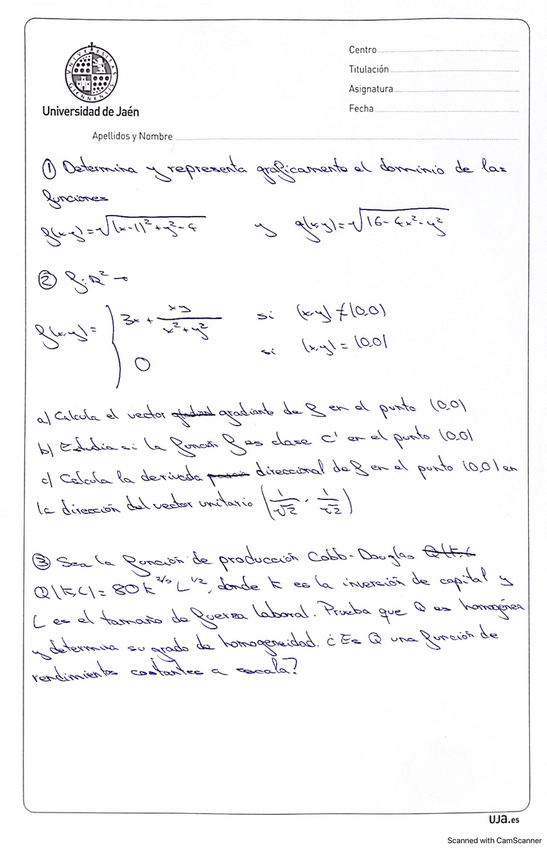 Centro
Titulación
Asignatura
Fecha
Universidad de Jaén
Apellidos y Nombre
① Determina y representa graficamente el dominio de las
funciones
f(x,y)=√((x-1)²+y²-4) y g(x,y)=√(16-4x²-y²)
② f:ℝ²→
f(x,y)= { 3x + xy/(x²+y²) si (x,y)≠(0,0)
0 si (x,y)=(0,0)
a) Calcula el vector gradiante de f en el punto (0,0)
b) Estudia si la función f es clase C' en el punto (0,0)
c) Calcula la derivada direccional de f en el punto (0,0) en
la dirección del vector unitario (1/√2, 1/√2)
③ Sea la función de producción Cobb-Douglas
Q(K,L)=80K L^1/2, donde K es la inversión de capital y
L es el tamaño de fuerza laboral. Prueba que Q es homogénea
y determina su grado de homogeneidad. ¿Es Q una función de
rendimientos constantes a escala?
UJa.es
Scanned with CamScanner